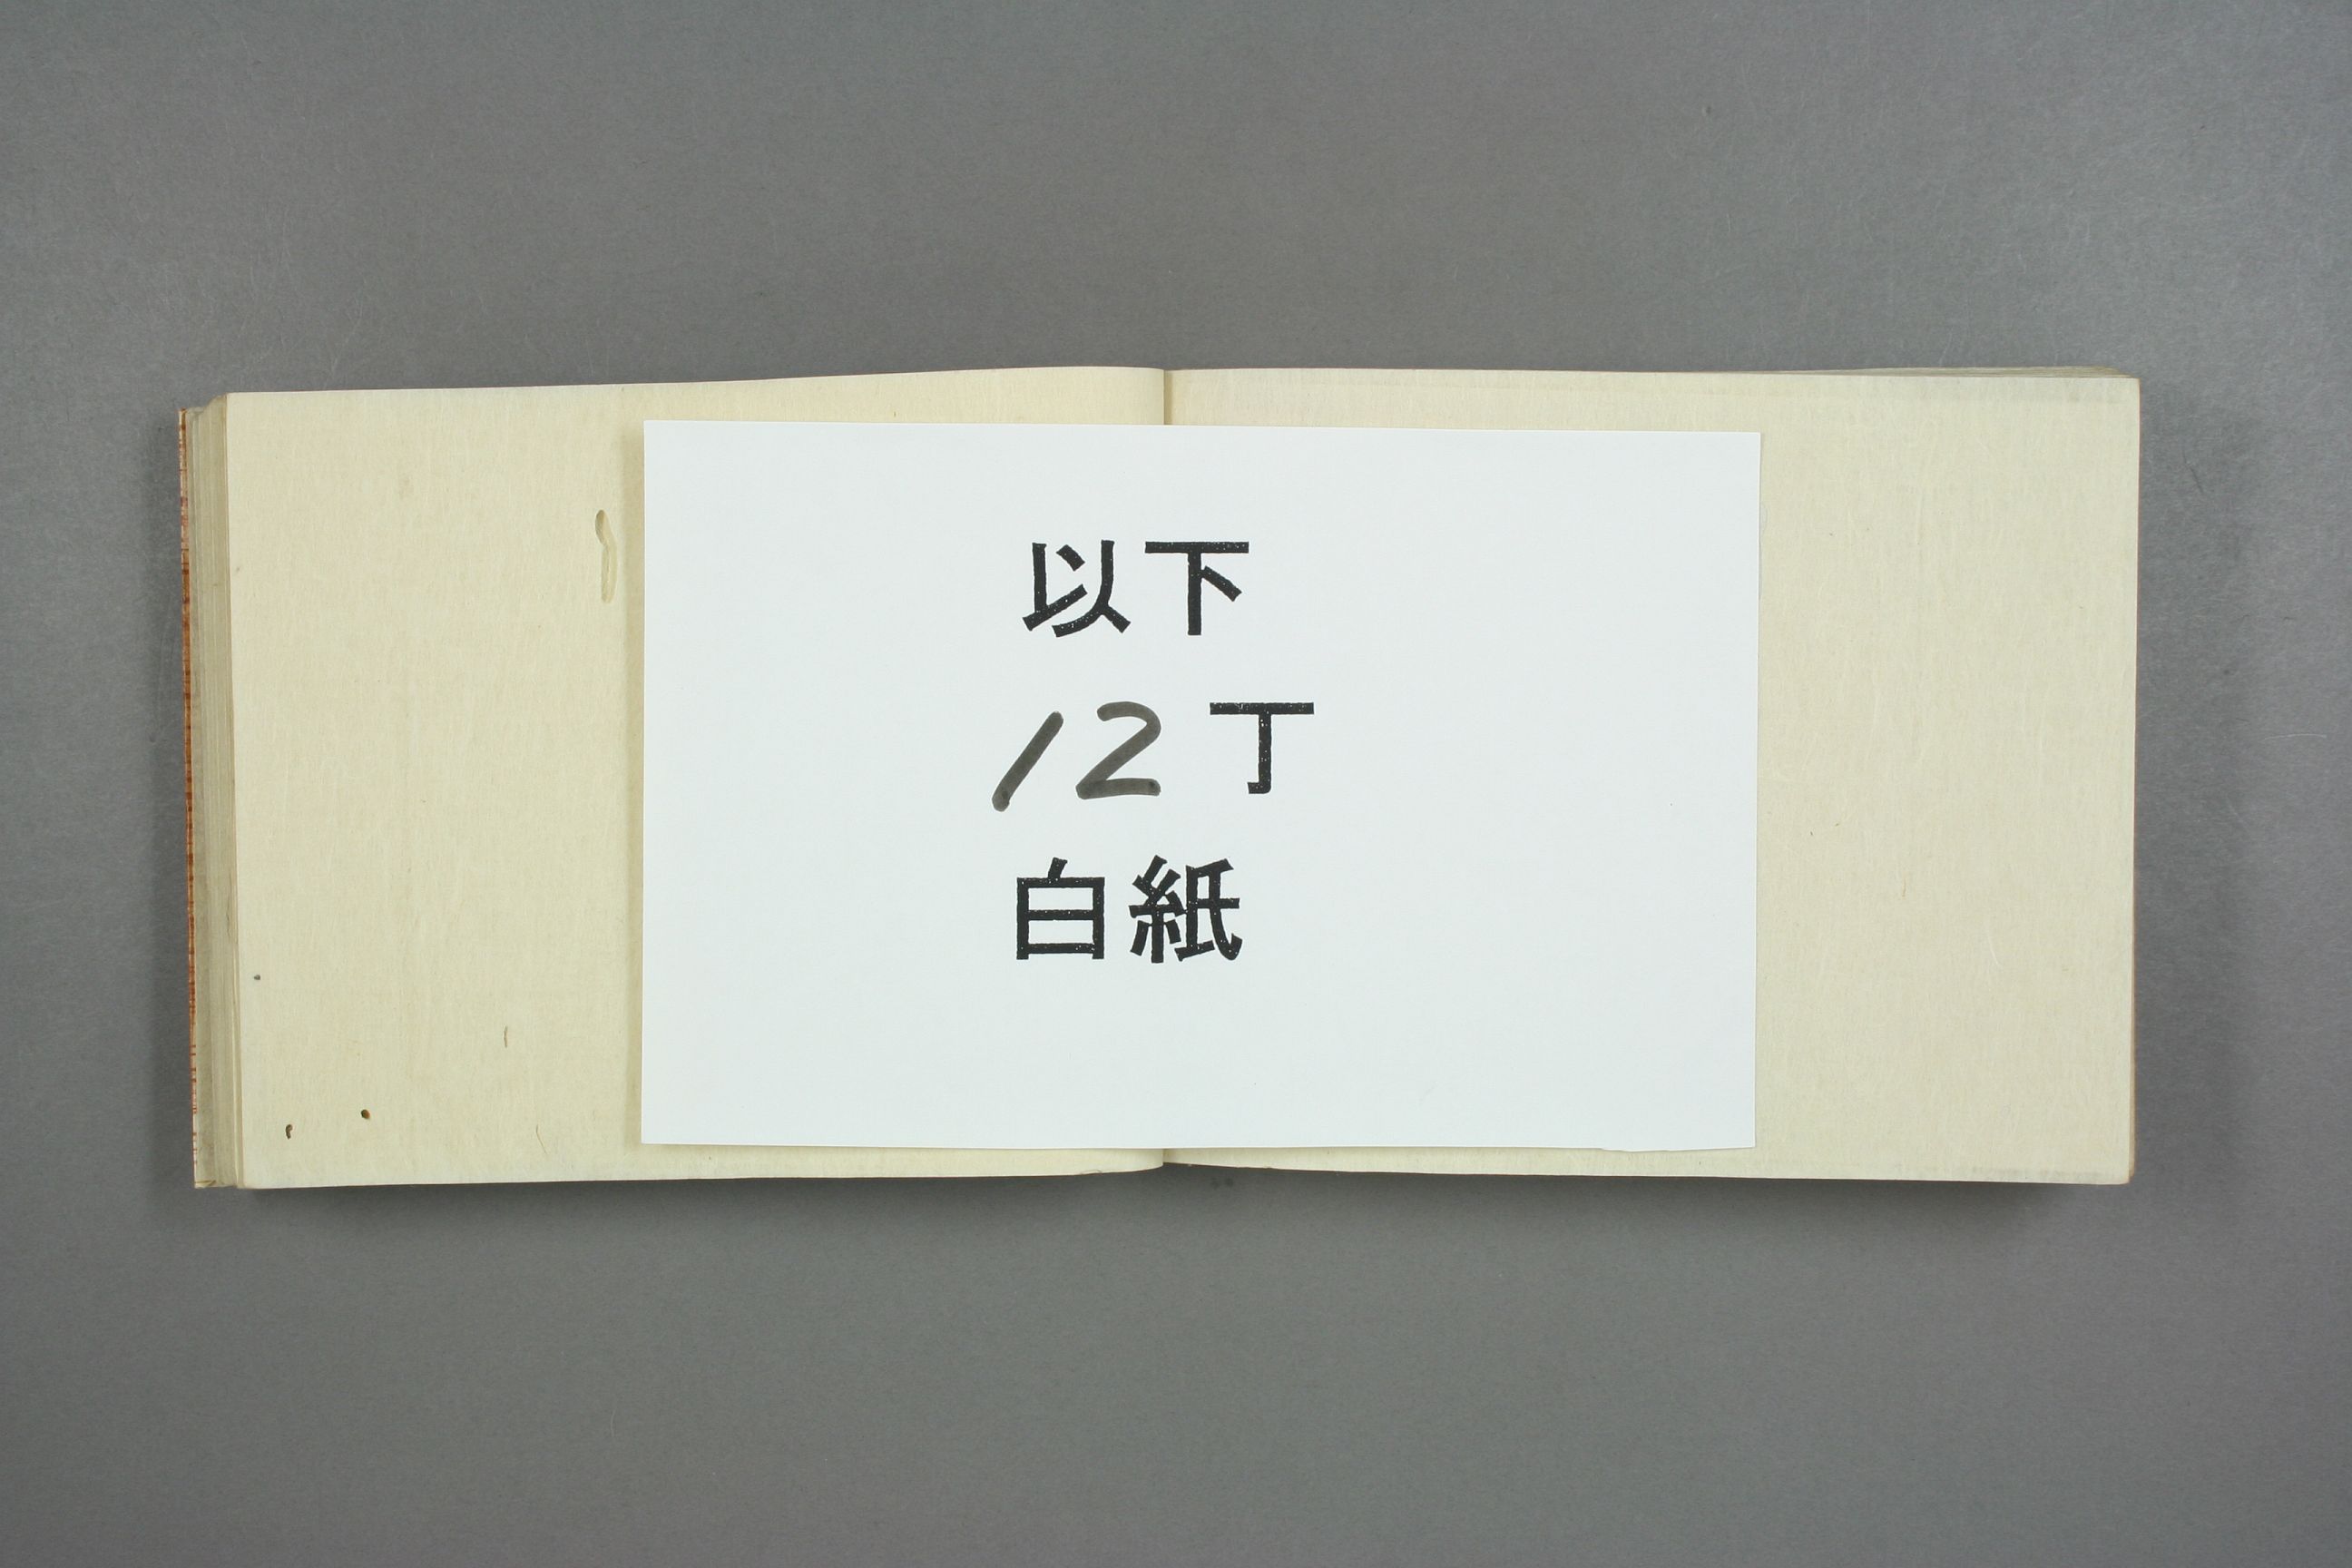 以下
12丁
白紙